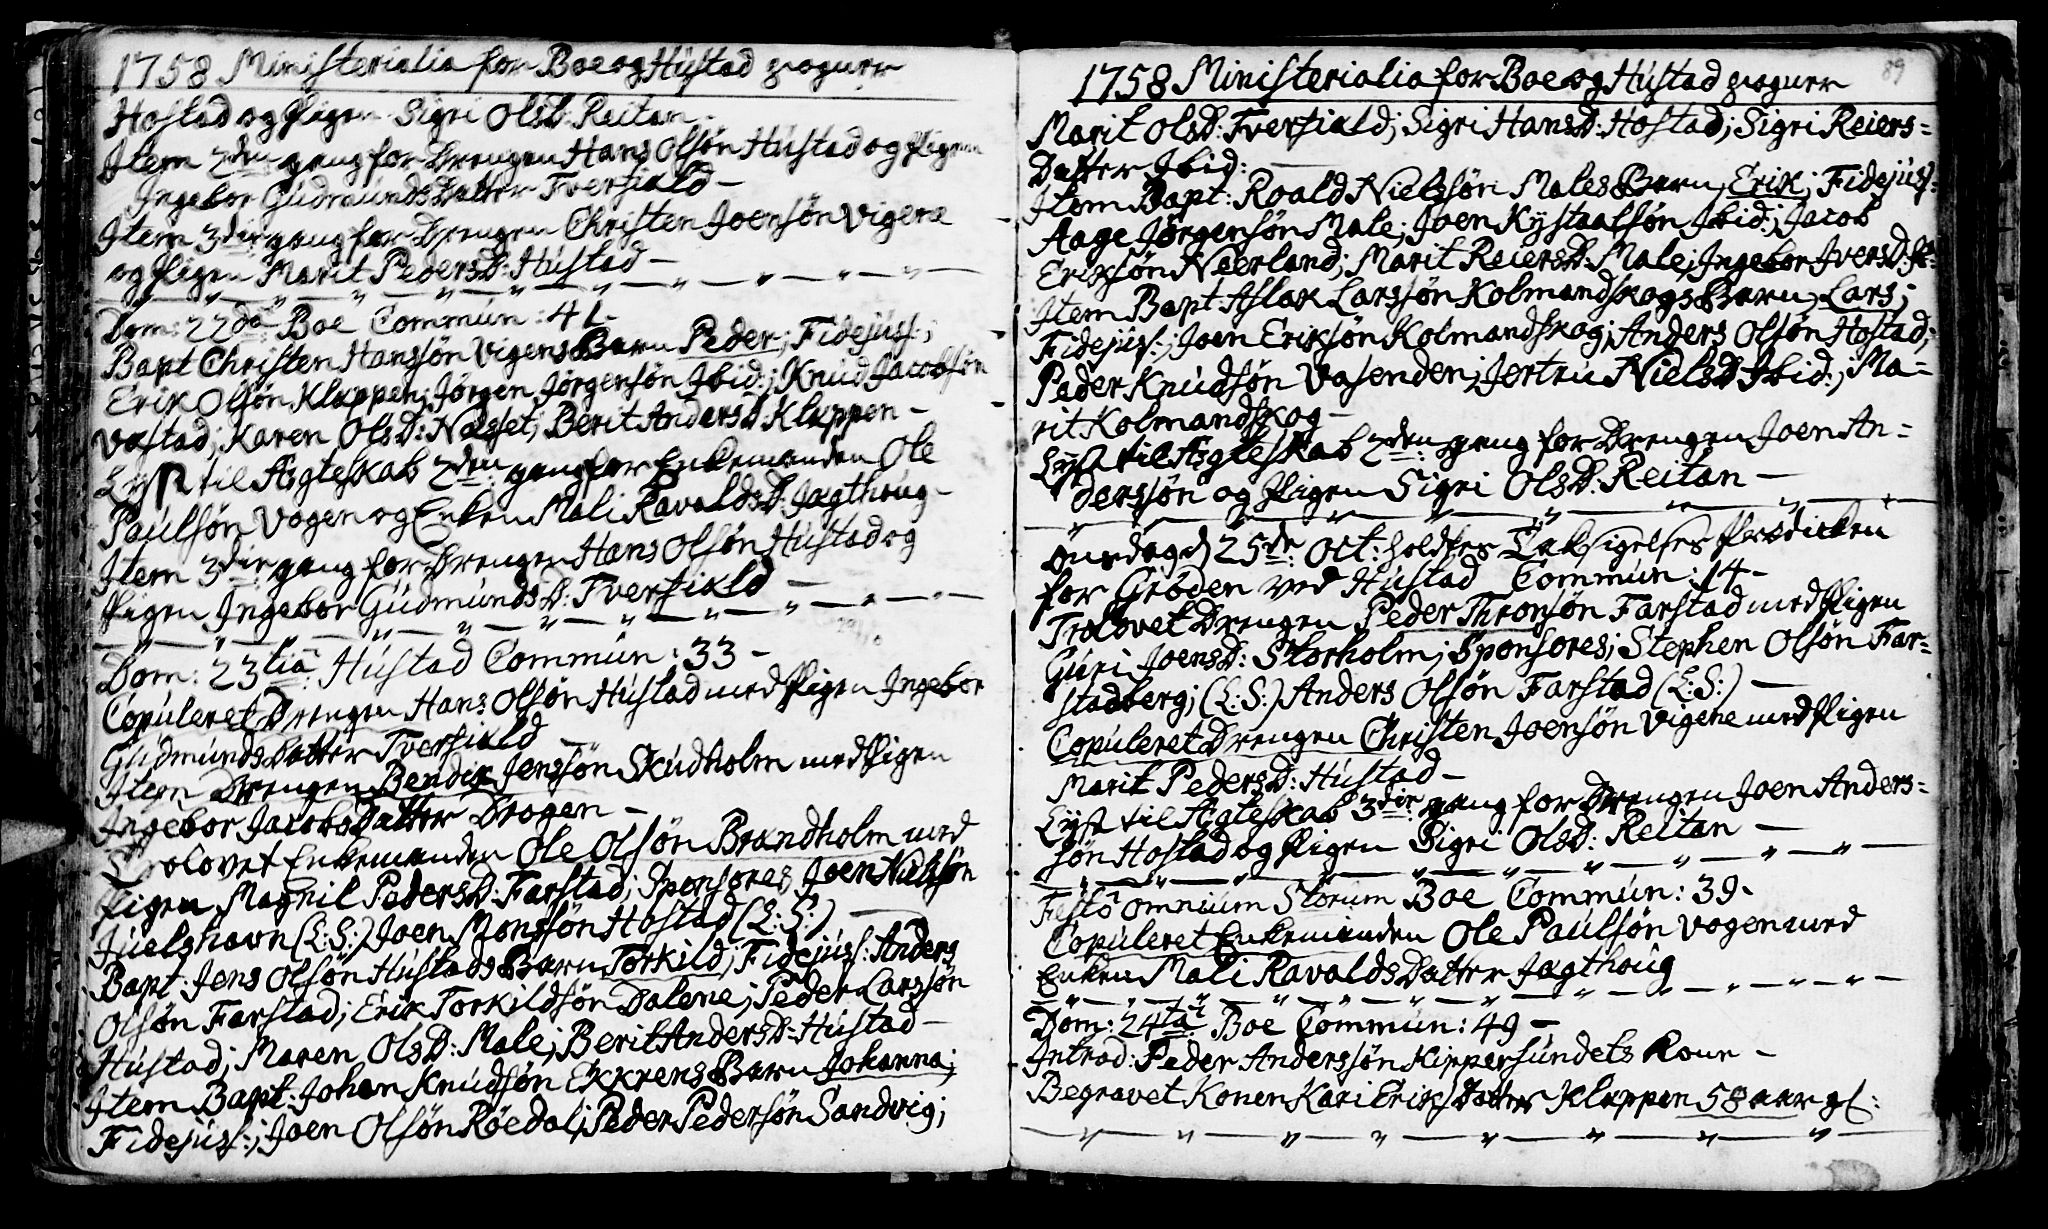 1758 Ministerialia for Boe og Hústad
Hostad og Pigen Sigri Olsd: Reitan.
Item 2den gang for Drengen Hans Olsøn Hústad og Pigen
Ingebor Gúdmúnds Datter Tverfiald –
Item 3die gang for Drengen Christen Joensøn Vigene
og Pigen Marit Pedersd: Hústad –
Dom: 22da Boe Commún: 41.
Bapt Christen Hanssøn Vigens Barn Peder; Fidejús:;
Erik Olsøn Kleppen; Jørgen Jørgensøn Ibid:; Knúd Jacobsøn
Vastad; Karen Olsd: Nesset; Berit Andersd: Kleppen –
Lyst til Ægteskab 2den gang for Enkemanden Ole
Paúlsøn Vogen og Enken Mali Ravaldsd: Jagthoúg –
Item 3die gang for Drengen Hans Olsøn Hústad og
Pigen Ingebor Gúdmúndsd: Tverfiald –
Dom: 23tia Hústad Commún: 33 –
Copúleret Drengen Hans Olsøn Hústad med Pigen Ingebor
Gúdmúnds Datter Tverfiald –
Item Drengen Bendix Jenssøn Skúdholm med Pigen
Ingebor Jacobs Datter Drogen –
Trolovet Enkemanden Ole Olsøn Brandholm med
Pigen Magnil Pedersd: Farstad; Sponsores Joen Nielssøn
Júelshavn (L:S:) Joen Monssøn Hostad (L:S:) –
Bapt: Jens Olsøn Hústads Barn Torkild; Fidejús: Anders
Olsøn Farstad; Erik Torkildsøn Dalene; Peder Larssøn
Hústad; Maren Olsd: Male; Berit Andersd: Hústad –
Item Bapt: Johan Knúdsøn Ekkrens Barn Johanna;
Fidejús:; Joen Olsøn Røedal; Peder Pedersøn Sandvig;
89
1758 Ministerialia for Boe og Hústad
Marit Olsd: Tverfiald; Sigri Hansd: Hostad; Sigri Reiers=
Datter Ibid: –
Item Bapt: Roald Nielssøn Males Barn Erik; Fidejús:
Aage Jørgensøn Male; Joen Kystaalsøn Ibid:; Jacob
Eriksøn Neerland; Marit Reiersd: Male; Ingebor Iversd:
Item Bapt Aslak Larssøn Kolmandskogs Barn Lars;
Fidejús:; Joen Eriksøn Kolmandskog; Anders Olsøn Hostad;
Peder Knúdsøn Vasenden; Jertrú Nielsd Ibid:; Ma=
rit Kolmandskog –
Lyst til Ægteskab 2den gang for Drengen Joen An=
derssøn og Pigen Sigri Olsd: Reitan –
Onsdag d 25de Oct: holdtes Taksigelses Prædicken
for Grøden ved Hústad Commún: 14 –
Trolovet Drengen Peder Thronsøn Farstad med Pigen
Gúri Joensd: Storholm; Sponsores; Stephen Olsøn Far=
stadberg; (L:S:) Anders Olsøn Farstad (L:S:) –
Copúleret Drengen Christen Joensøn Vigene med Pigen
Marit Pedersd: Hústad –
Lyst til Ægteskab 3die gang for Drengen Joen Anders=
søn Hostad og Pigen Sigri Olsd: Reitan –
Festo omniúm Storúm Boe Commún: 39.
Copúleret Enkemanden Ole Paúlsøn Vogen med
Enken Mali Ravalds Datter Jagthoúg
Dom: 24ta Boe Commún: 49 –
Introd: Peder Anderssøn Kippersúndets Kone –
Begravet Konen Kari Eriks Datter Kleppen 58 aar gl: